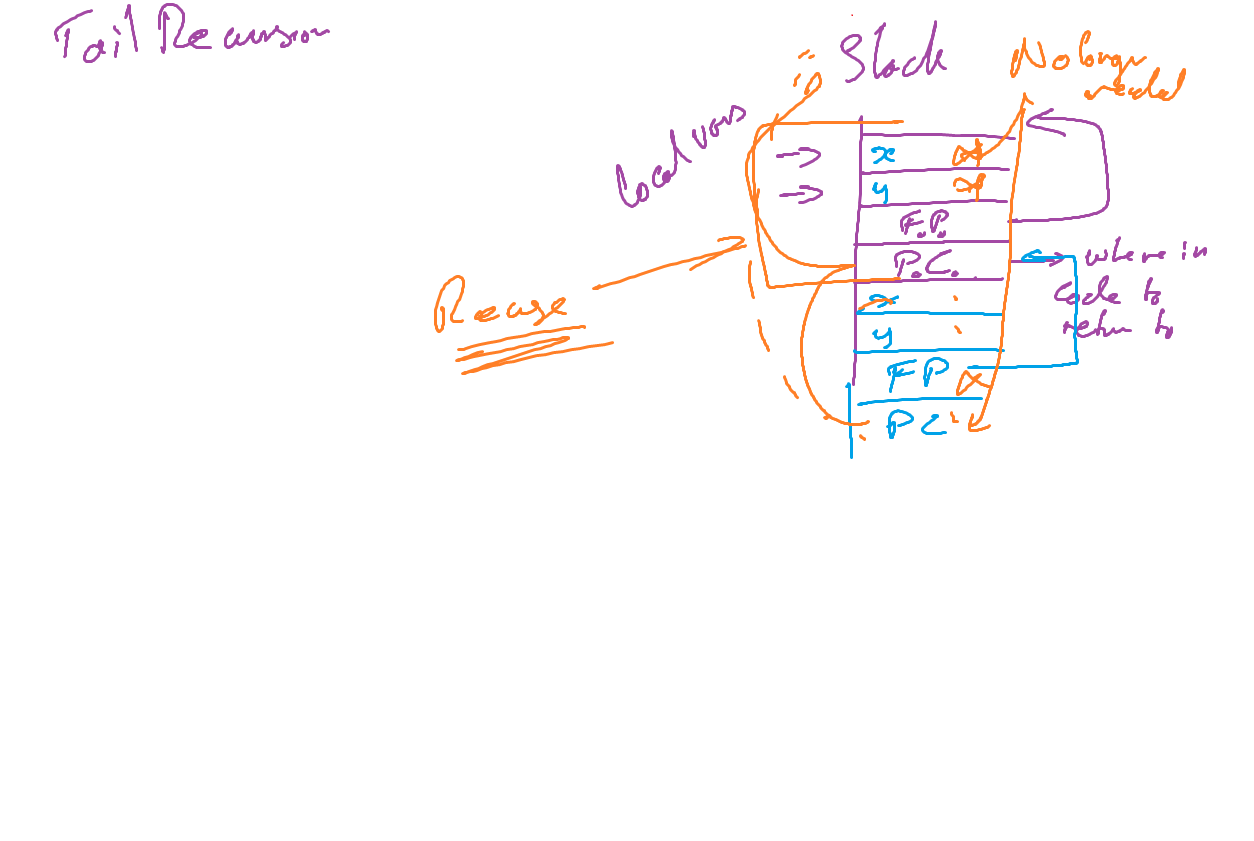 Tail Recursion
Stack
No longer
needed
local vars
x
y
F.P.
P.C.
where in
code to
return to
Reuse
x
y
FP
PC